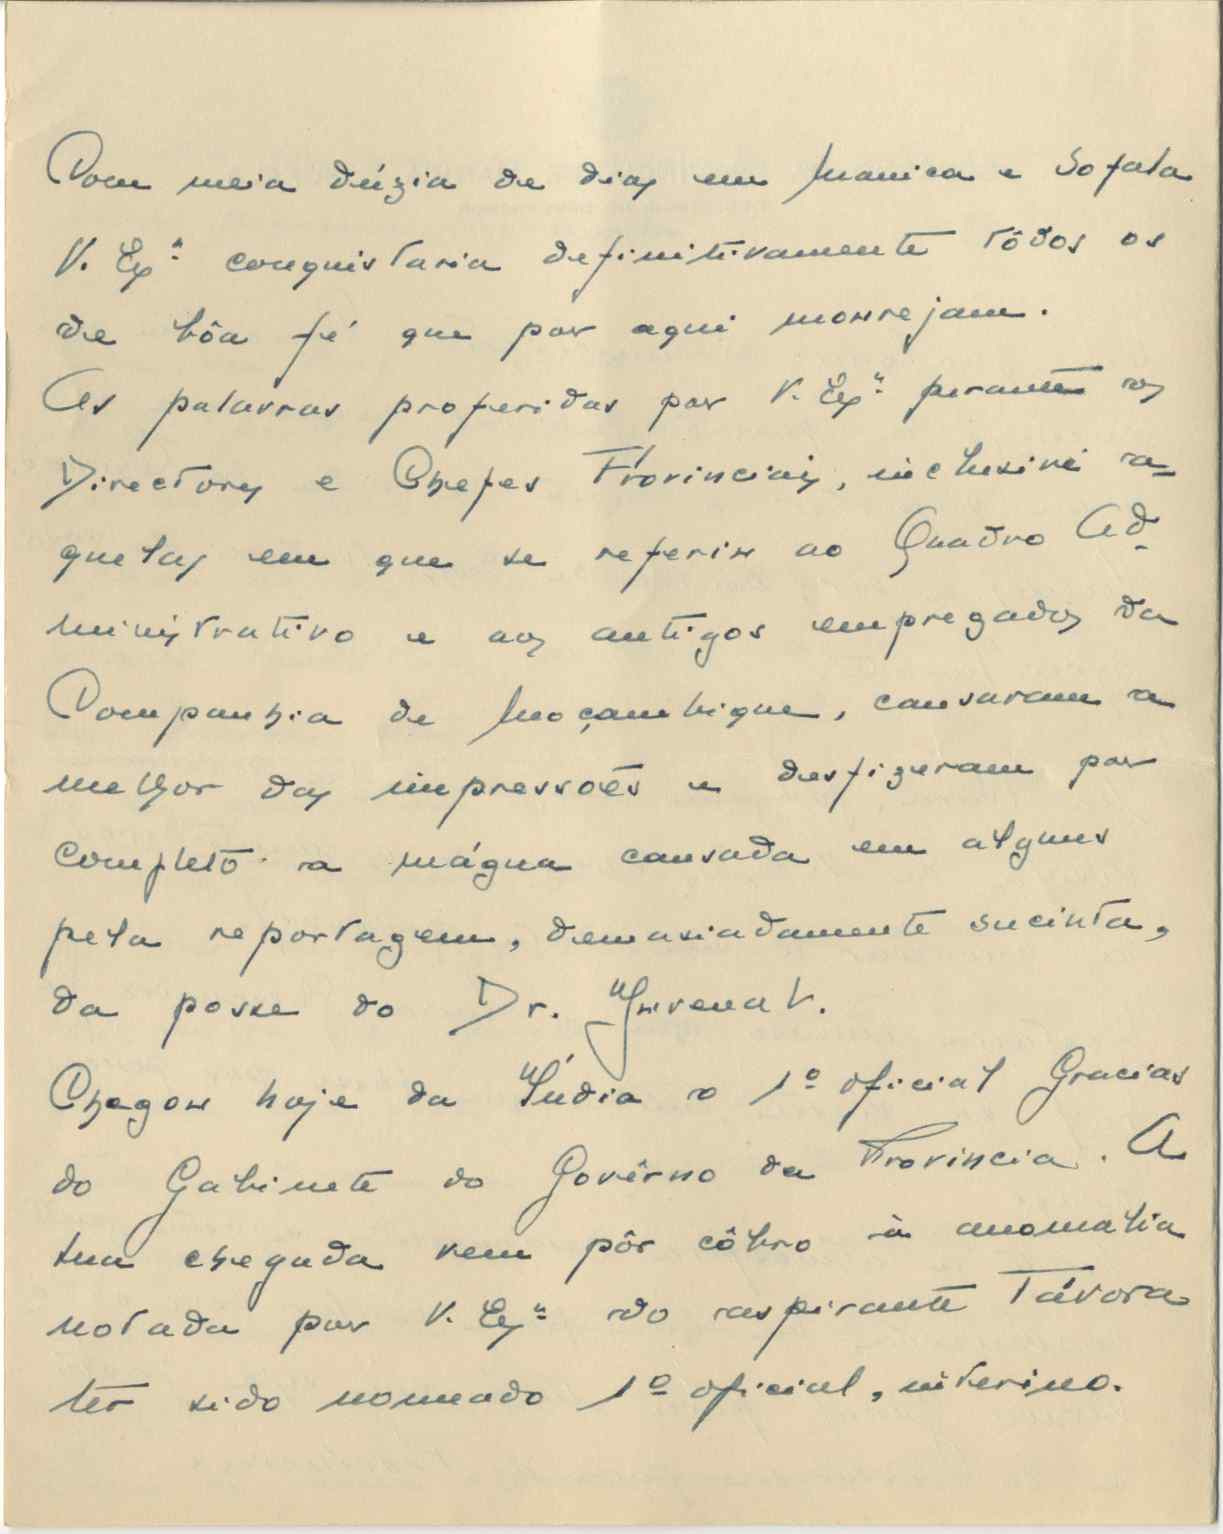 Com meia dúzia de dias em Manica e Sofala
V. Exª conquistaria definitivamente todos os
de bôa fé que por aqui mourejam.
As palavras proferidas por V. Exª perante os
Directores e Chefes Provinciais, inclusivé a-
quelas em que se referiu ao Quadro Ad-
ministrativo e aos antigos empregados da
Companhia de Moçambique, causaram a
melhor das impressões e desfizeram por
completo a mágua causada em alguns
pela reportagem, demasiadamente sucinta,
da posse do Dr. Juvenal.
Chegou hoje da Índia o 1º oficial Gracias
do Gabinete do Govêrno da Provincia. A
sua chegada vem pôr côbro à anomalia
notada por V. Exª do aspirante Távora
ter sido nomeado 1º oficial, interino.